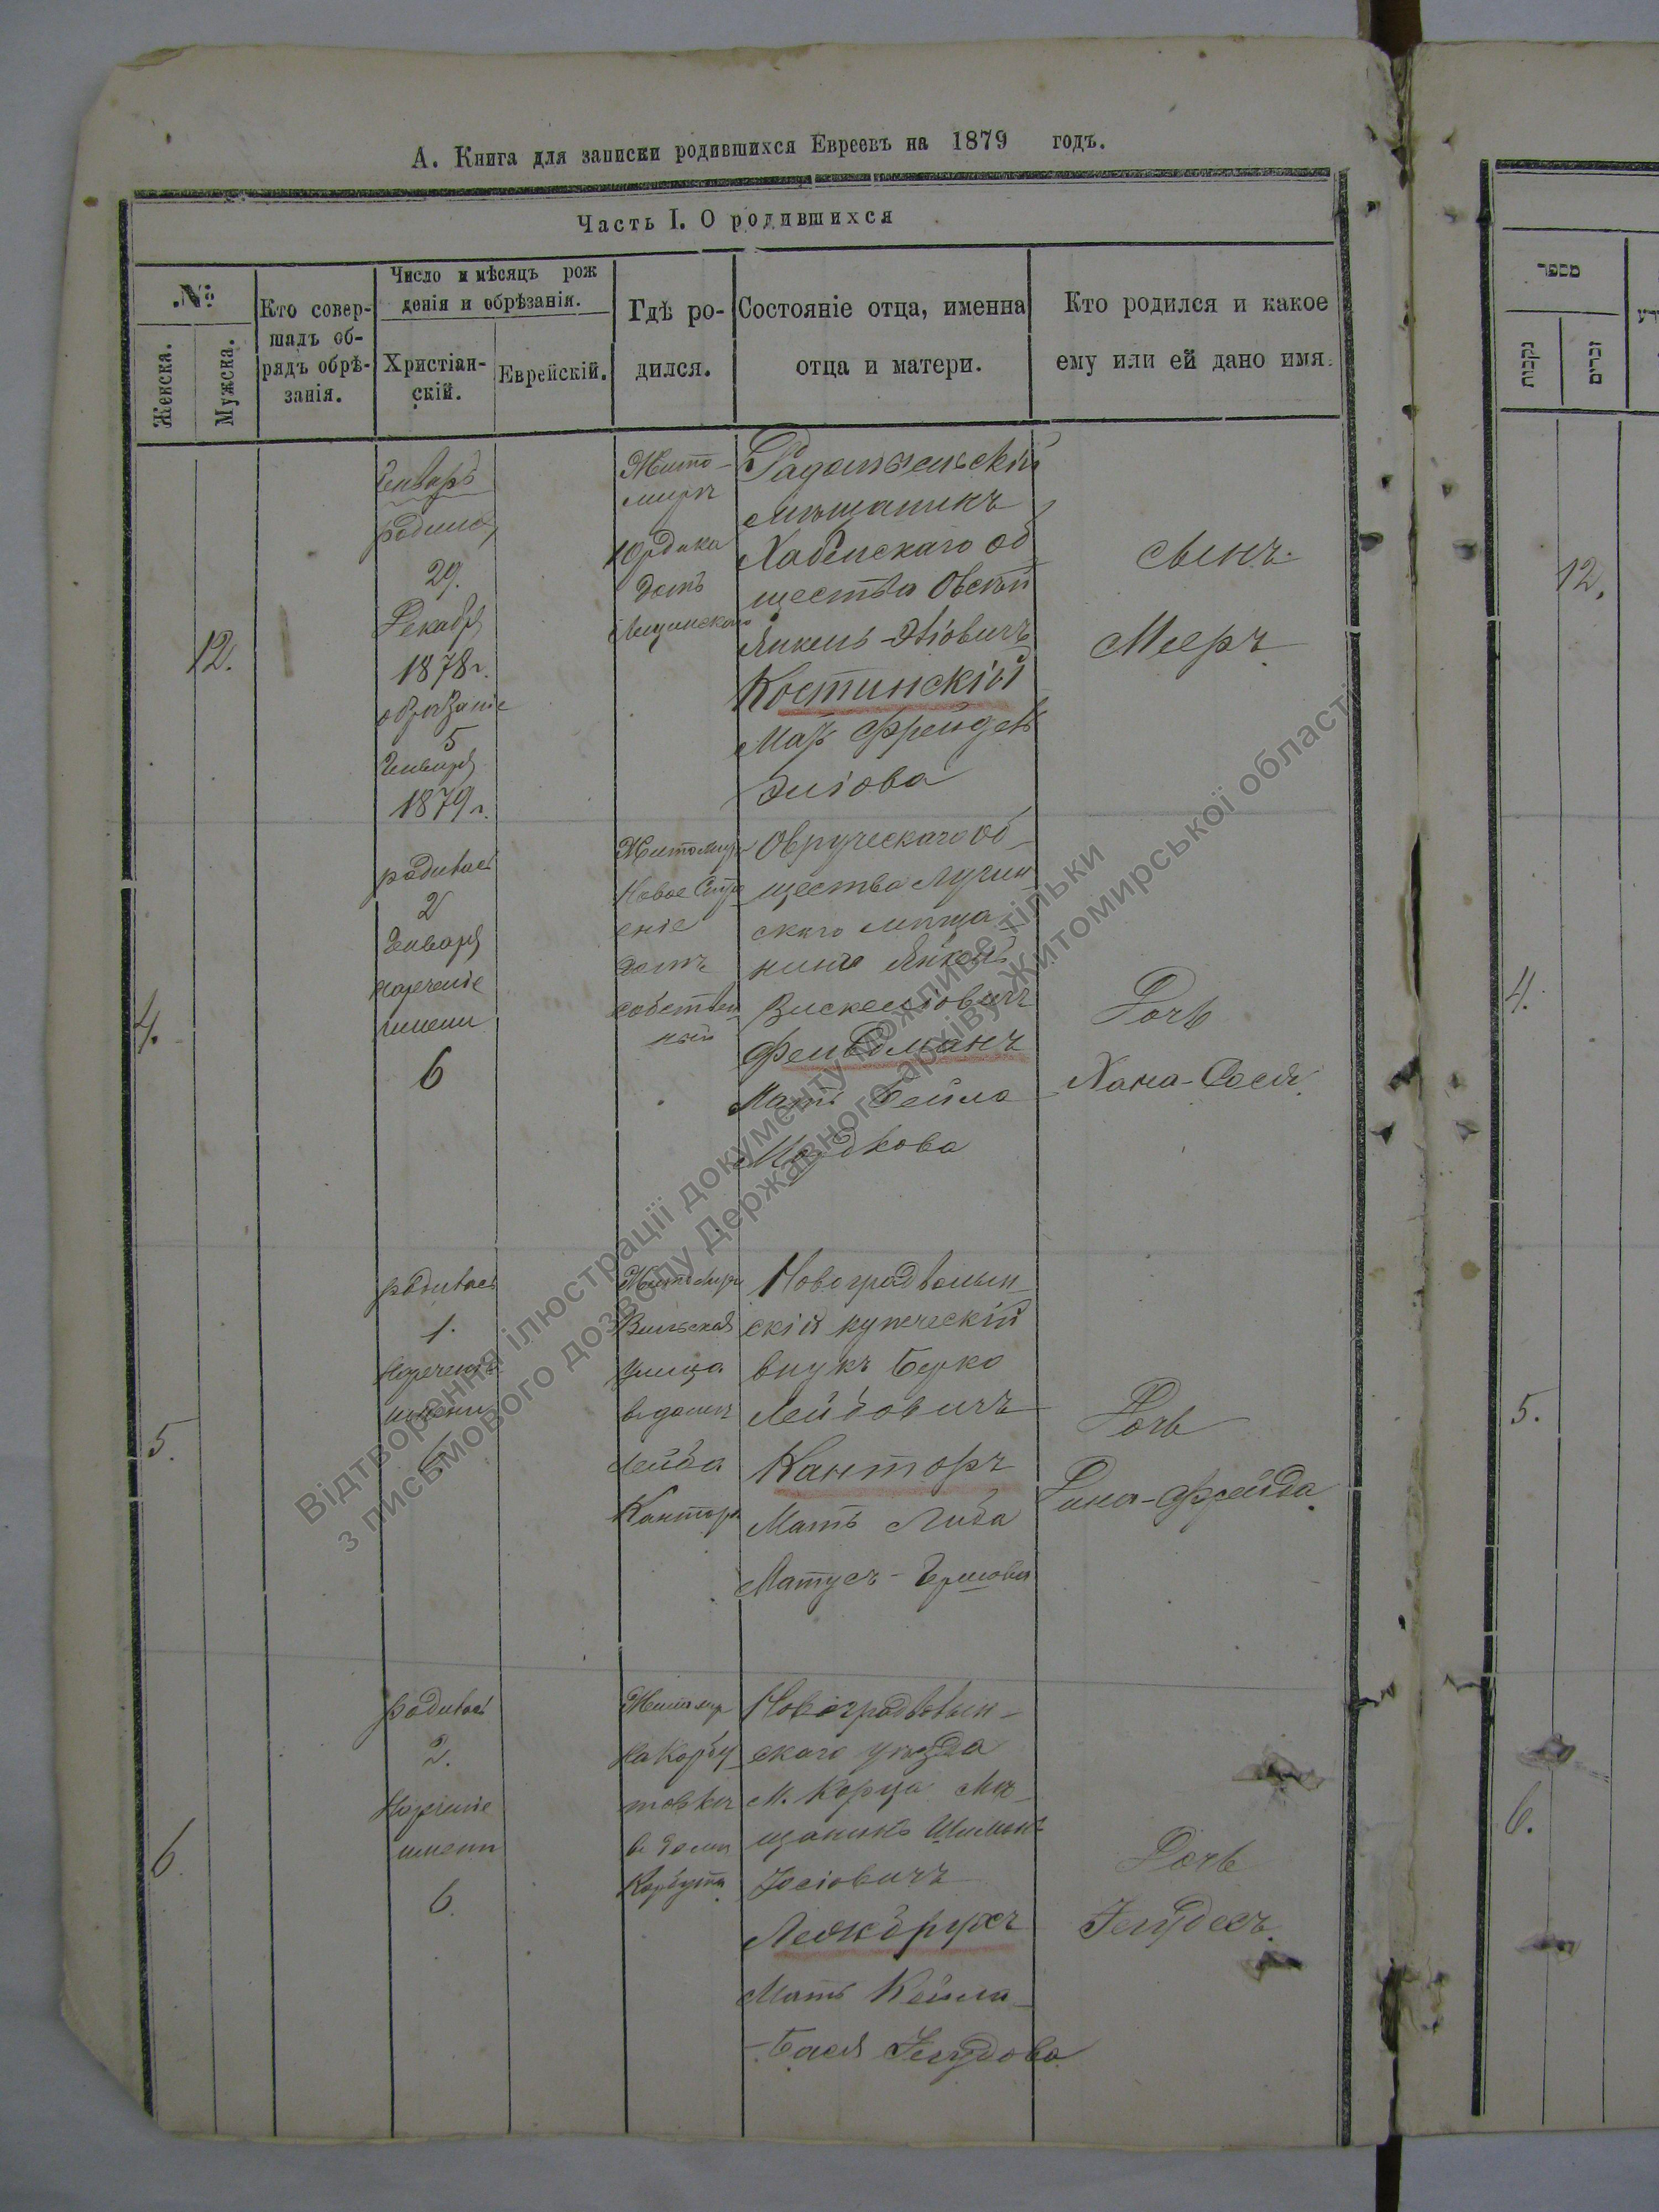 А. Книга для записки родившихся Евреевъ на 1879 годъ.
Часть I. О родившихся
№
Женска.
Мужска.
Кто совер-
шалъ об-
рядъ обрѣ-
занія.
Число и мѣсяцъ рож
денія и обрѣзанія.
Христіан-
скій.
Еврейскій.
Гдѣ ро-
дился.
Состояніе отца, именна
отца и матери.
Кто родился и какое
ему или ей дано имя.
12.
Генварь
родился
29.
Декабря
1878 г.
обрѣзаніе
5
Генваря
1879 г.
Жито-
миръ
домъ
Радомысльскій
мѣщанинъ
Хабенскаго об
щества
Янкель
Костинскій
Мать Фрейдель
сынъ
Мееръ
4.
родилась
2
Генваря
нареченіе
имени
6
Житомиръ
Новое Стро
еніе
домъ
собствен
ный
Овручскаго Об-
щества Лугин
скаго мѣща
нина Янкель
Фельдманъ
Мать Бейла
Мордкова
Дочь
Хана-Сося
5.
родилась
1.
Нареченіе
имени
6
Житомиръ
Вильская
Улица
въ домѣ
Лейба
Кантора
Новоградволын-
скій купеческій
внукъ Берко
Лейбовичъ
Канторъ
Мать Люба
Матусъ-Гершова
Дочь
Дина-Фрейда
6
родилась
2.
Нареченіе
имени
6.
Житомир
На Корбу
товкѣ
въ домѣ
Корбута
Новоградволын-
скаго уѣзда
М. Корца Мѣ-
щанинъ
Іосіовичъ
Мать Кейла-
-Бася Іегудова
Дочь
Іегудесъ
מספר
נקבות
זכרים
12.
4.
5.
6.
Відтворення ілюстрації документу можливе тільки
з письмового дозволу Державного архіву Житомирської області